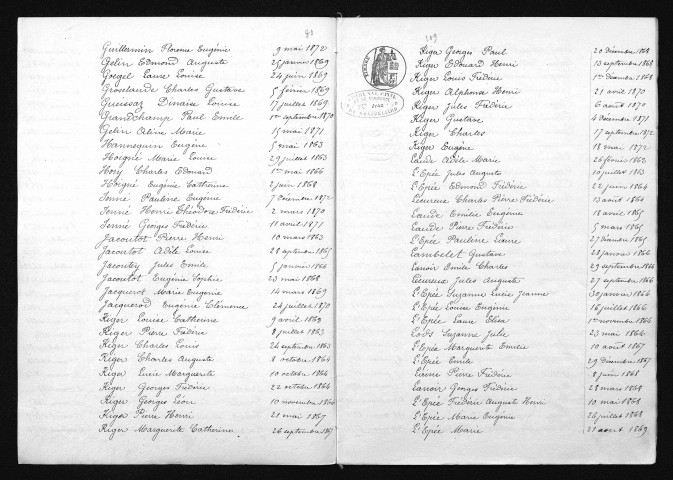 81
Guillermin Florence Eugénie 9 mai 1872
Gelin Edmond Auguste 25 janvier 1869
Goegel Laure Louise 24 juin 1869
Groselaude Charles Gustave 5 février 1869
Grandchamp Paul Emile 1er septembre 1870
Gelin Céline Marie 15 mai 1871
Hannequin Eugène 5 mai 1863
Hoigné Marie Louise 29 juillet 1863
Hosy Charles Edouard 1er mai 1866
Hoigné Eugénie Catherine 2 juin 1868
Jenné Pauline Eugénie 7 décembre 1872
Jenné Henri Théodore Frédéric 2 mars 1870
Jenné Georges Frédéric 11 avril 1871
Jacoutot Pierre Henri 10 mars 1863
Jacoutot Adèle Louise 28 septembre 1865
Jacoutey Jules Emile 5 janvier 1866
Jacoutot Eugénie Sophie 23 mai 1868
Jacquerod Marie Eugénie 14 mars 1869
Jacquerod Eugénie Clémence 24 juillet 1870
Kiger Louise Catherine 9 avril 1863
Kiger Pierre Frédéric 8 juillet 1863
Kiger Charles Louis 24 septembre 1863
Kiger Charles Auguste 8 octobre 1864
Kiger Lucie Marguerite 10 octobre 1864
Kiger Georges Frédéric 22 octobre 1864
Kiger Georges Léon 10 novembre 1866
Kiger Pierre Henri 21 mai 1867
Kiger Marguerite Catherine 26 septembre 1867
Kiger Georges Paul 20 décembre 1868
Kiger Edouard Henri 13 septembre 1868
Kiger Louis Frédéric 1er décembre 1868
Kiger Alphonse Henri 21 avril 1870
Kiger Jules Frédéric 6 août 1870
Kiger Gustave 4 décembre 1871
Kiger Charles 17 septembre 1872
Kiger Eugène 18 mai 1872
Laude Adèle Marie 26 février 1863
L'Epée Jules Auguste 10 juillet 1863
L'Epée Edmond Frédéric 22 juin 1864
Lecureux Charles Pierre Frédéric 13 août 1864
Laude Emilie Eugénie 18 avril 1865
Laude Pierre Frédéric 5 mars 1865
L'Epée Pauline Laure 27 décembre 1865
Lambelet Gustave 20 janvier 1866
Lanoir Emile Charles 29 septembre 1866
Lecureux Jules Auguste 27 septembre 1866
L'Epée Suzanne Lucie Jeanne 30 janvier 1866
L'Epée Louise Eugénie 16 juillet 1866
L'Epée Laure Elisa 1er novembre 1866
Suzanne Julie 23 mai 1866
L'Epée Marguerite Emilie 10 août 1867
L'Epée Emile 29 décembre 1867
Pierre Frédéric 8 juin 1868
Lanoir Georges Frédéric 28 mars 1868
L'Epée Frédéric Auguste Henri 10 mai 1868
L'Epée Marie Eugénie 26 juillet 1868
L'Epée Marie 21 août 1869